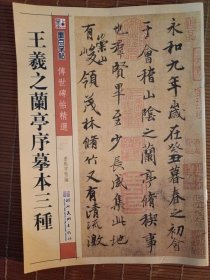 墨点字帖
傳世碑帖精選
王羲之蘭亭序摹本三種
永和九年歲在癸丑暮春之初會
于會稽山陰之蘭亭脩稧事
也羣賢畢至少長咸集此地
有崇山峻領茂林脩竹又有清流激